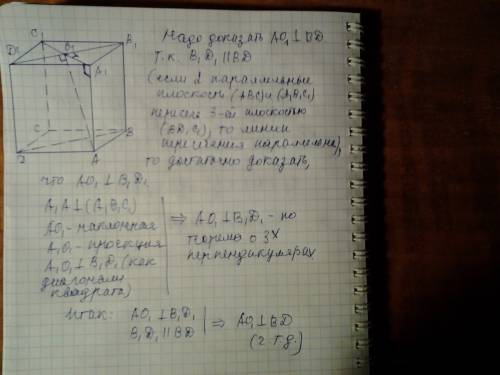 Надо доказать AO₁⊥BD
т.к. B₁D₁∥BD
(если 2 параллельные
плоскость (ABC) и (A₁B₁C₁)
пересеч 3-ей плоскостью
(BD₁C₁), то линии
пересечения параллельны),
то достаточно доказать,
что AO₁⊥B₁D₁
A₁A⊥(A₁B₁C₁)
AO₁ - наклонная
A₁O₁ - проекция
A₁O₁⊥B₁D₁ (как
диагонали
квадрата)
⇒ AO₁⊥B₁D₁ - по
теореме о 3х
перпендикулярах
Итак: AO₁⊥B₁D₁
B₁D₁∥BD
⇒ AO₁⊥BD
(ч.т.д.)
C₁
D₁
O₁
B₁
A₁
C
B
D
A